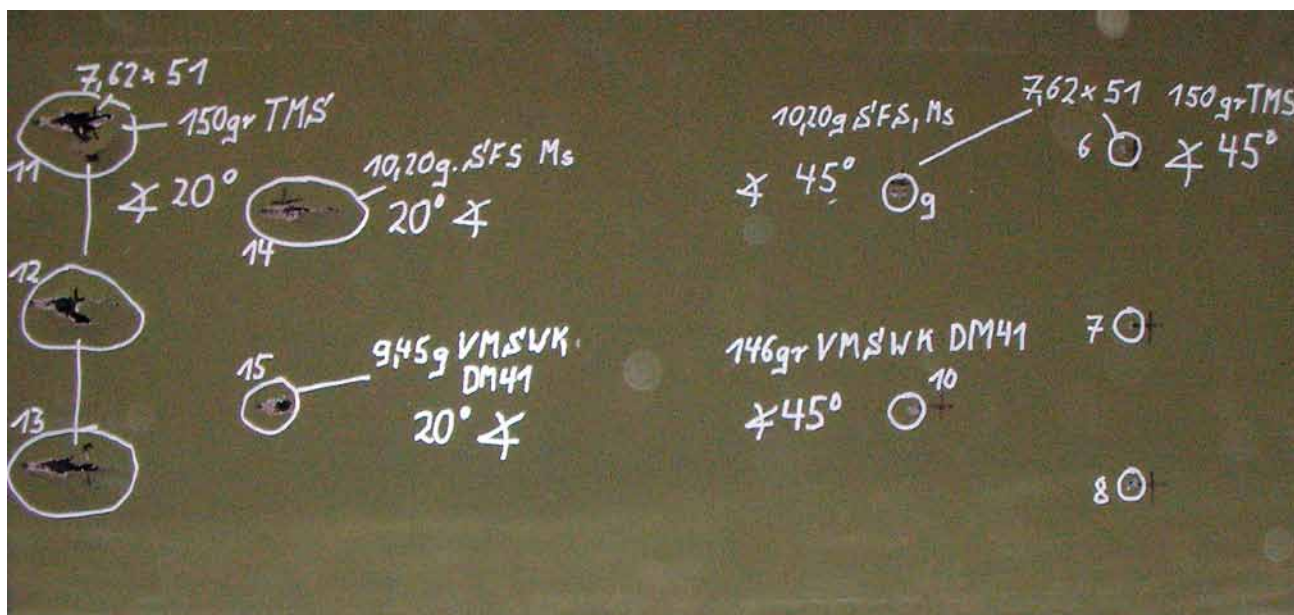 7,62 x 51
150gr TMS
11
∡ 20°
10,20g. SFS Ms
20° ∡
14
12
13
15
9,45g VMSWK
DM41
20° ∡
10,20g SFS, Ms
∡ 45°
9
7,62 x 51 150gr TMS
6
∡ 45°
146gr VMSWK DM41
∡ 45°
10
7
8